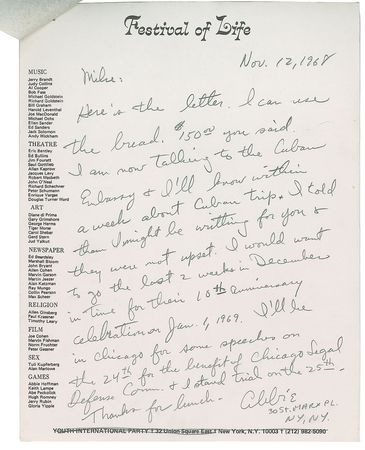 Festival of Life
Nov. 12, 1968
Mike:
Here's the letter. I can use
the bread. $150.00 you said.
I am now talking to the Cuban
Embassy & I'll know within
a week about Cuban trip. I told
them I might be writting for you &
they were not upset. I would want
to go the last 2 weeks in December
in time for their 10th anniversary
celebration on Jan. 1, 1969. I'll be
in Chicago for some speeches on
the 24th for the benefit of Chicago Legal
Defense Comm. & I stand trial on the 25th.
Thanks for lunch.
Abbie
30 St. Marx Pl.
NY, NY.
MUSIC
Jerry Brandt
Judy Collins
Al Cooper
Bob Fass
Michael Goldstein
Richard Goldstein
Bill Graham
Harold Leventhal
Joe MacDonald
Michael Ochs
Ellen Sander
Ed Sanders
Jack Solomon
Andy Wickham
THEATRE
Eric Bentley
Ed Bullins
Jim Fouratt
Saul Gottlieb
Allan Kaprow
Jacques Levy
Robert Macbeth
John O'Neal
Richard Schechner
Peter Schumann
Enrique Vargas
Douglas Turner Ward
ART
Diane di Prima
Gary Grimshaw
George Herms
Tiger Morse
Carol Sheber
Gerd Stern
Jud Yalkut
NEWSPAPER
Ed Beardsley
Marshall Bloom
John Bryant
Allen Cohen
Marvin Garson
Martin Jezer
Alan Katzman
Ray Mungo
Collin Pearson
Max Scherr
RELIGION
Allen Ginsberg
Paul Krassner
Timothy Leary
FILM
Joe Cohen
Marvin Fishman
Norm Fruchter
Peter Gessner
SEX
Tuli Kupferberg
Alan Marlowe
GAMES
Abbie Hoffman
Keith Lampe
Abe Peckolick
Hugh Romney
Jerry Rubin
Gloria Yipple
YOUTH INTERNATIONAL PARTY / 32 Union Square East / New York, N.Y. 10003 / (212) 982-5090